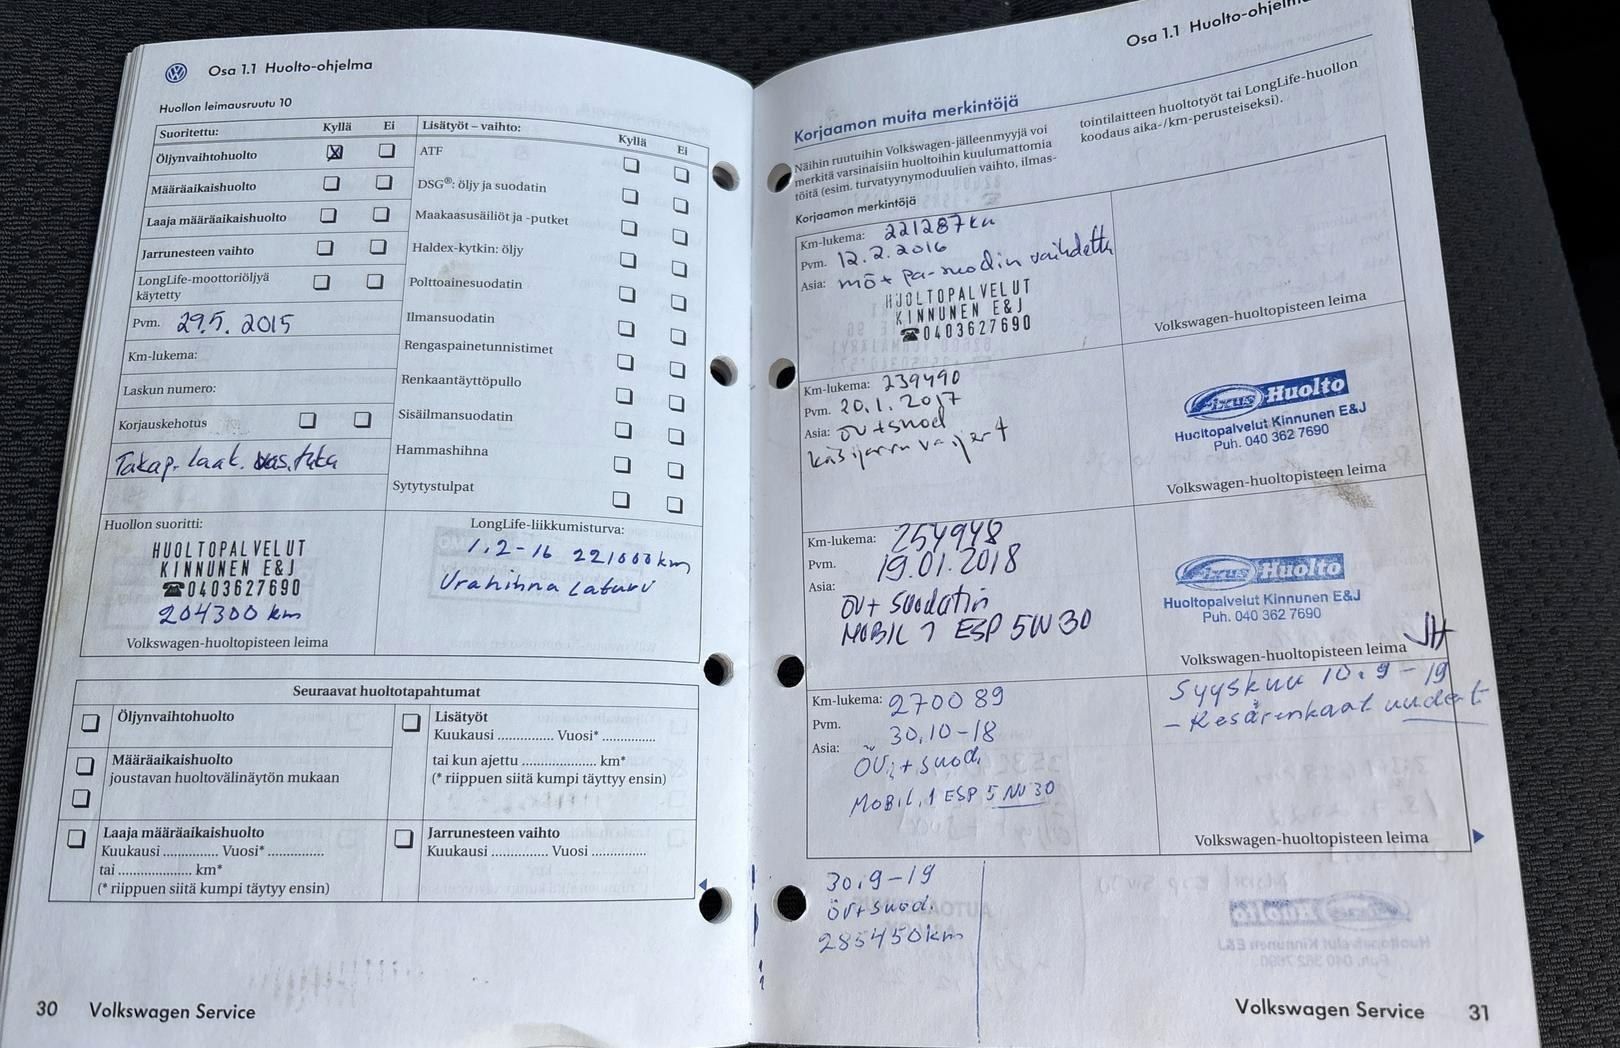 Osa 1.1 Huolto-ohjelma
Huollon leimausruutu 10
Suoritettu: Kyllä Ei
Öljynvaihtohuolto
Määräaikaishuolto
Laaja määräaikaishuolto
Jarrunesteen vaihto
LongLife-moottoriöljyä
käytetty
Pvm. 29.5. 2015
Km-lukema:
Laskun numero:
Korjauskehotus
Takap. laak. vas.
Lisätyöt – vaihto: Kyllä Ei
ATF
DSG®: öljy ja suodatin
Maakaasusäiliöt ja -putket
Haldex-kytkin: öljy
Polttoainesuodatin
Ilmansuodatin
Rengaspainetunnistimet
Renkaantäyttöpullo
Sisäilmansuodatin
Hammashihna
Sytytystulpat
Huollon suoritti:
HUOLTOPALVELUT
KINNUNEN E&J
☎0403627690
204300 km
Volkswagen-huoltopisteen leima
LongLife-liikkumisturva:
1.2-16 221000km
Urahihna Laturi
Seuraavat huoltotapahtumat
Öljynvaihtohuolto
Määräaikaishuolto
joustavan huoltovälinäytön mukaan
Laaja määräaikaishuolto
Kuukausi .............. Vuosi* ..............
tai ................... km*
(* riippuen siitä kumpi täytyy ensin)
Lisätyöt
Kuukausi .............. Vuosi* ..............
tai kun ajettu ................... km*
(* riippuen siitä kumpi täyttyy ensin)
Jarrunesteen vaihto
Kuukausi .............. Vuosi ..............
30 Volkswagen Service
Osa 1.1 Huolto-ohjelma
Korjaamon muita merkintöjä
Näihin ruutuihin Volkswagen-jälleenmyyjä voi
merkitä varsinaisiin huoltoihin kuulumattomia
töitä (esim. turvatyynymoduulien vaihto, ilmas-
tointilaitteen huoltotyöt tai LongLife-huollon
koodaus aika-/km-perusteiseksi).
Korjaamon merkintöjä
Km-lukema: 221287km
Pvm. 12.2.2016
Asia: mö+ pa-suodin vaihdettu
HUOLTOPALVELUT
KINNUNEN E&J
☎0403627690
Volkswagen-huoltopisteen leima
Km-lukema: 239490
Pvm. 20.1.2017
Asia: öv+suod
käsijarru vaijert
Fixus Huolto
Huoltopalvelut Kinnunen E&J
Puh. 040 362 7690
Volkswagen-huoltopisteen leima
Km-lukema: 254948
Pvm. 19.01.2018
Asia:
ÖV+ suodatin
MOBIL 1 ESP 5W30
Fixus Huolto
Huoltopalvelut Kinnunen E&J
Puh. 040 362 7690
Volkswagen-huoltopisteen leima JH
Km-lukema: 270089
Pvm. 30.10-18
Asia:
ÖV.+suod.
MOBIL.1 ESP 5W30
Syyskuu 10.9-19
- Kesärenkaat uudet
Volkswagen-huoltopisteen leima
30.9-19
öv+suod.
285450km
Volkswagen Service 31